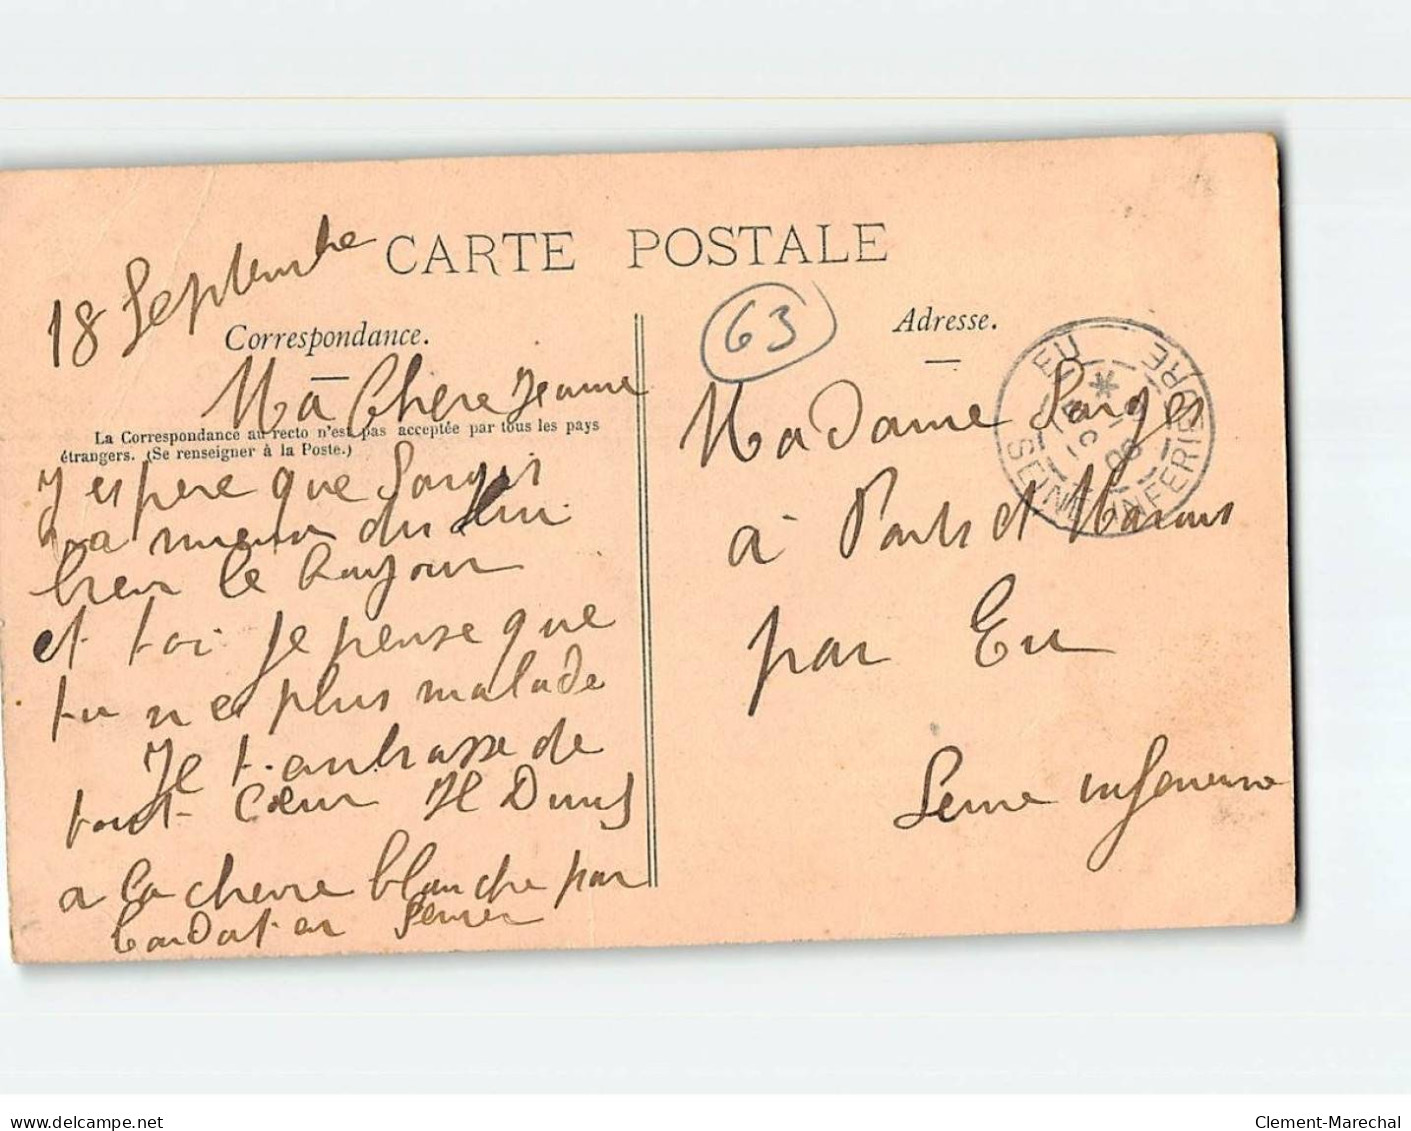 18 Septembre
CARTE POSTALE
Correspondance.
Ma Chere Jeanne
La Correspondance au recto n'est pas acceptée par tous les pays
étrangers. (Se renseigner à la Poste.)
J espere que
va du
bien le
et toi je pense que
tu n es plus malade
Je t. anbrasse de
tout Cœur
a la chevre blanche par
en
63
Adresse.
EU
SEINE INFERIEURE
Madame
à et Marais
par Eu
Seine inferieure
delcampe.net
Clement-Marechal